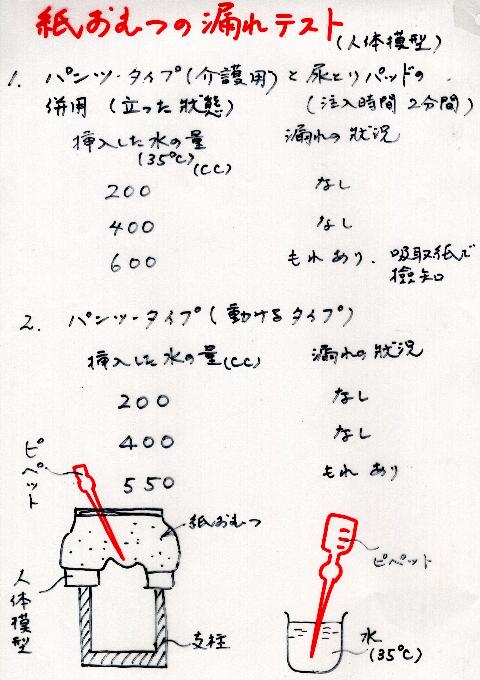 紙おむつの漏れテスト
(人体模型)
1. パンツ・タイプ(介護用)と尿とりパッドの
併用(立った状態) (注入時間 2分間)
挿入した水の量 漏れの状況
(35℃)(CC)
200 なし
400 なし
600 もれあり. 吸取紙で
検知
2. パンツ・タイプ(動けるタイプ)
挿入した水の量(CC) 漏れの状況
200 なし
400 なし
550 もれあり
ピペット
紙おむつ
人体模型
支柱
ピペット
水
(35℃)